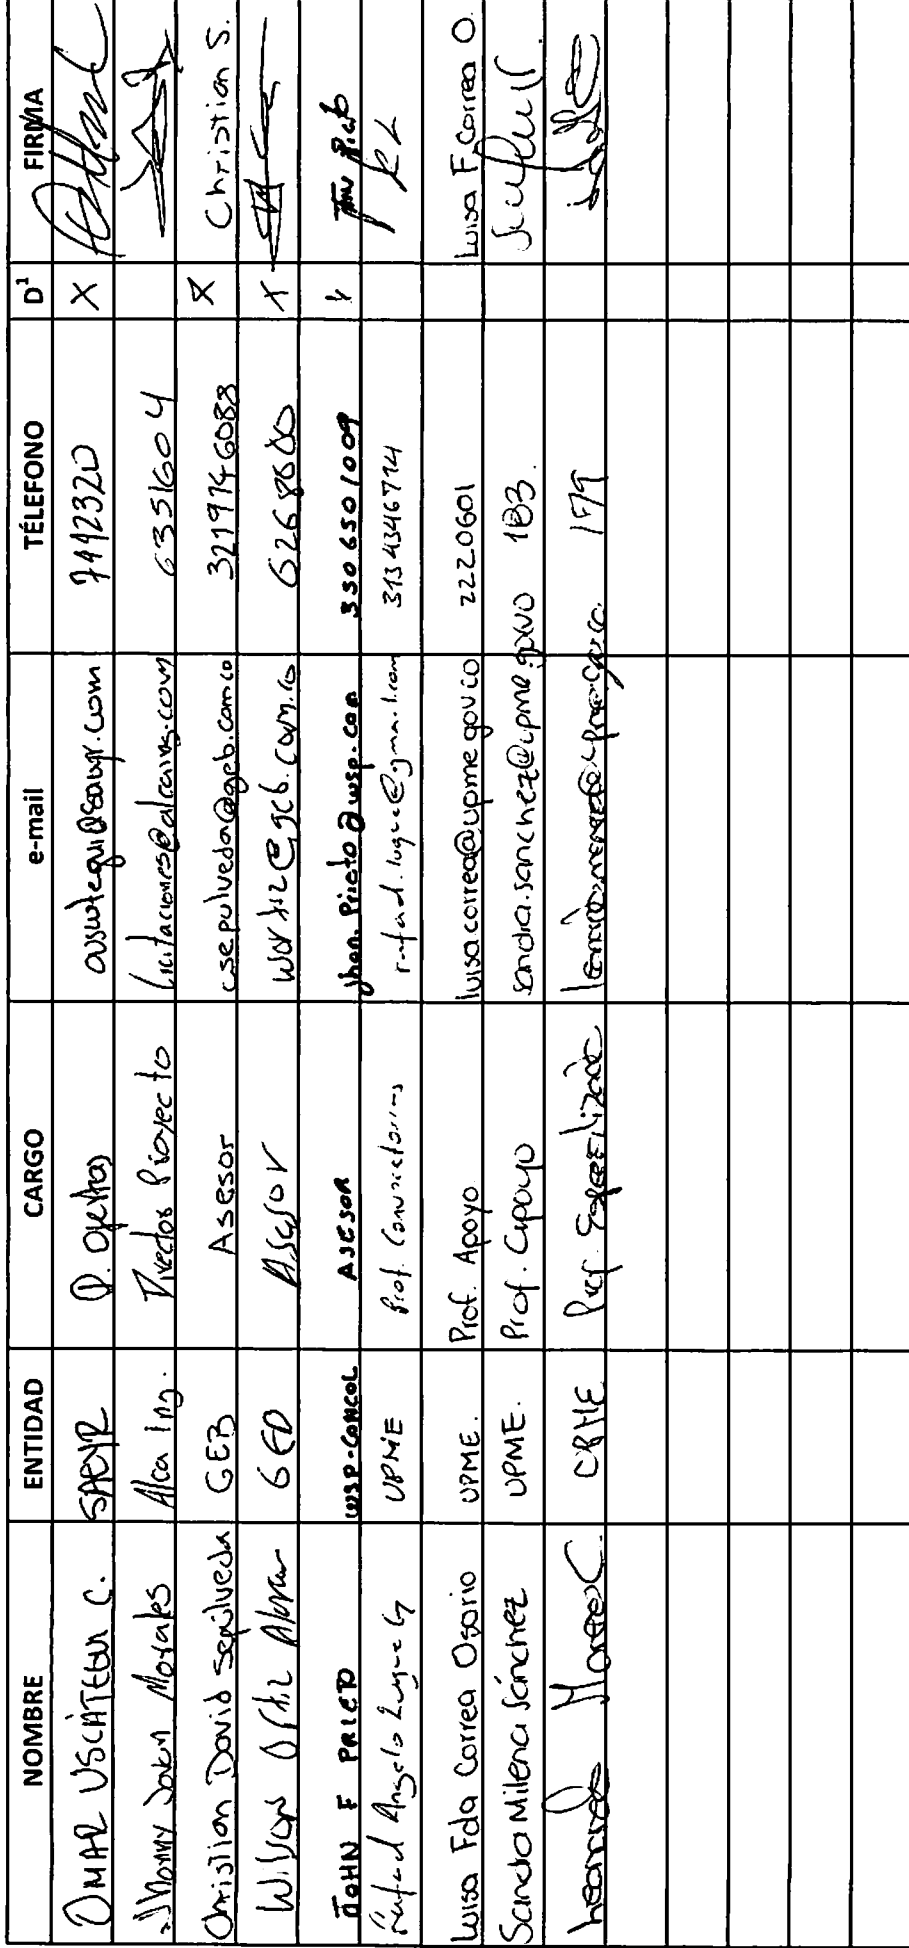 NOMBRE ENTIDAD CARGO e-mail TÉLEFONO D¹ FIRMA
OMAR C. SACYR 7442320 X
Jhonny Morales Alca Ing. Director Proyecto licitaciones@alcaing.com 6351604
Christian David Sepúlveda GEB Asesor csepulveda@geb.com.co 3219946088 X Christian S.
Wilson Ortiz GEB Asesor wortiz@geb.com.co 6268000 X
JOHN F PRIETO WSP-CONCOL ASESOR jhon.prieto@wsp.com 3506501009 x
Rafael Angelo Luque G UPME Prof. Convocatorias rafael.luque@gmail.com 3134346774
Luisa Fda Correa Osorio UPME. Prof. Apoyo luisa.correa@upme.gov.co 2220601 Luisa F Correa O.
Sandra Milena Sánchez UPME. Prof. Apoyo sandra.sanchez@upme.gov.co 183.
UPME Prof. Especializado 179